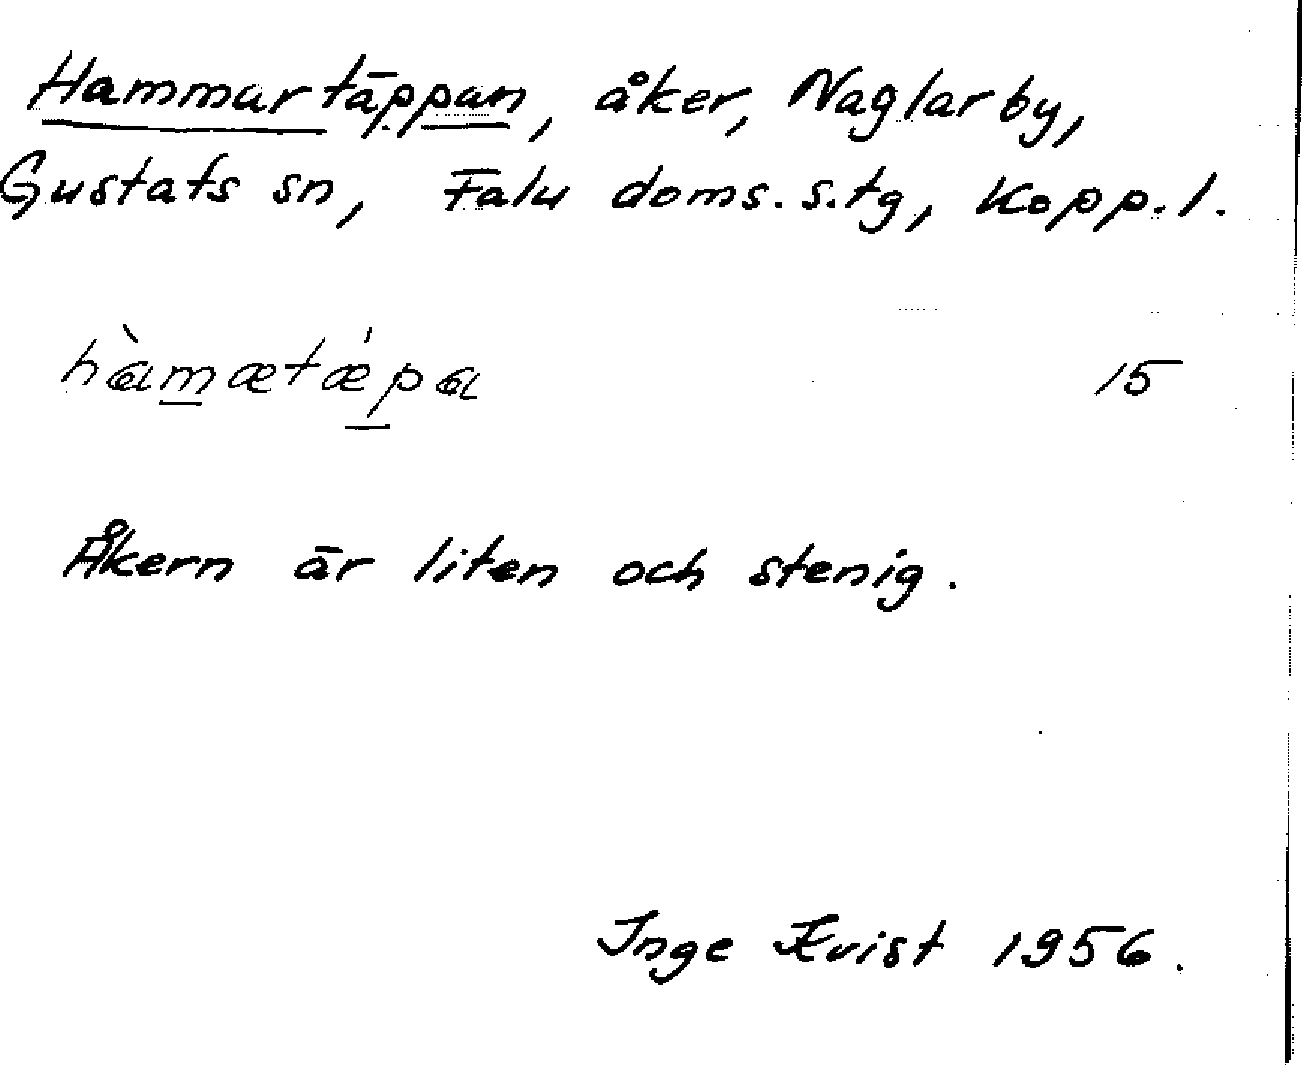 Hammartäppan, åker, Naglarby,
Gustafs sn, Falu doms. s. tg, Kopp. l.
hàmætǽpa 15
Åkern är liten och stenig.
Inge Kvist 1956.